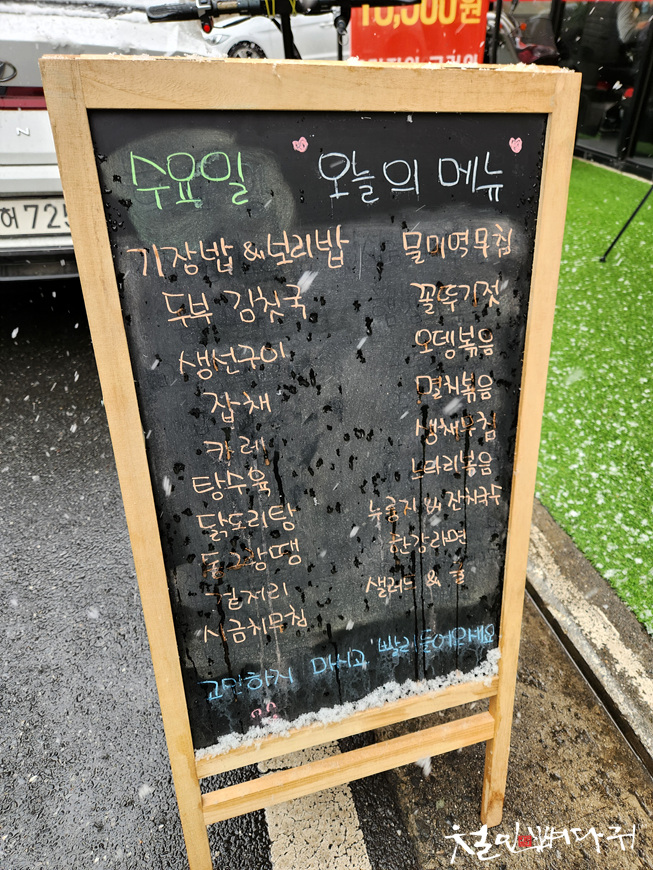 10,000원
허 725
N
수요일 오늘의 메뉴
기장밥 & 보리밥
두부 김칫국
생선구이
잡채
카레
탕수육
닭도리탕
동그랑땡
겉저리
시금치무침
물미역무침
꼴뚜기젓
오뎅볶음
멸치볶음
생채무침
누룽지 잔치국수
한강라면
샐러드 & 귤
고민하지 마시고 빨리 들어오세요